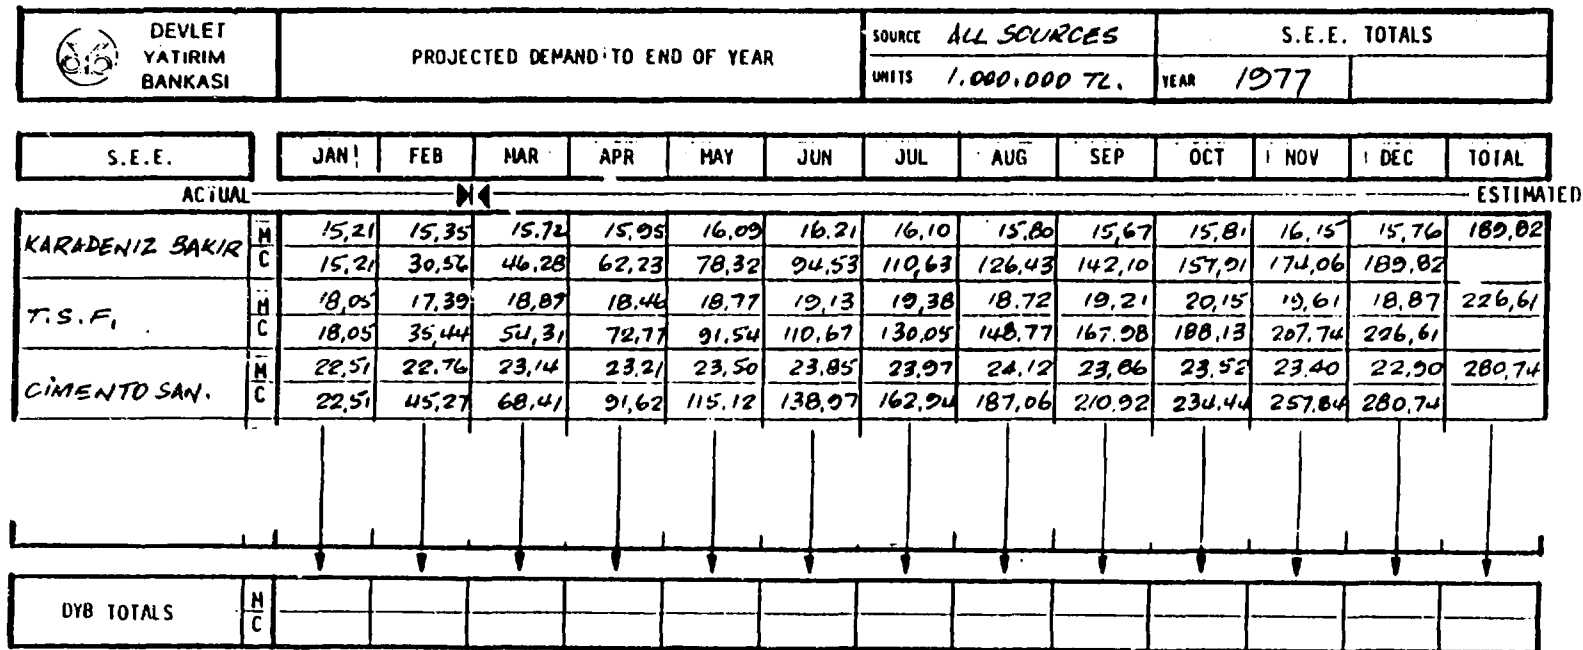 DEVLET
YATIRIM
BANKASI
PROJECTED DEMAND TO END OF YEAR
SOURCE ALL SOURCES
UNITS 1.000.000 TL.
S.E.E. TOTALS
YEAR 1977
S.E.E. JAN FEB MAR APR MAY JUN JUL AUG SEP OCT NOV DEC TOTAL
ACTUAL ESTIMATED
KARADENIZ BAKIR
M 15,21 15,35 15.72 15,95 16,09 16.21 16,10 15,80 15,67 15,81 16,15 15,76 189,82
C 15,21 30,56 46,28 62,23 78,32 94,53 110,63 126,43 142,10 157,91 174,06 189,82
T.S.F.
M 18,05 17,39 18,87 18.46 18.77 19,13 19,38 18.72 19,21 20,15 19,61 18,87 226,61
C 18,05 35,44 54,31 72,77 91,54 110,67 130,05 148,77 167.98 188,13 207,74 226,61
CIMENTO SAN.
M 22,51 22.76 23,14 23,21 23,50 23,85 23,97 24,12 23,86 23,52 23.40 22,90 280,74
C 22,51 45,27 68,41 91,62 115.12 138,97 162,94 187,06 210.92 234,44 257,84 280,74
DYB TOTALS
M
C